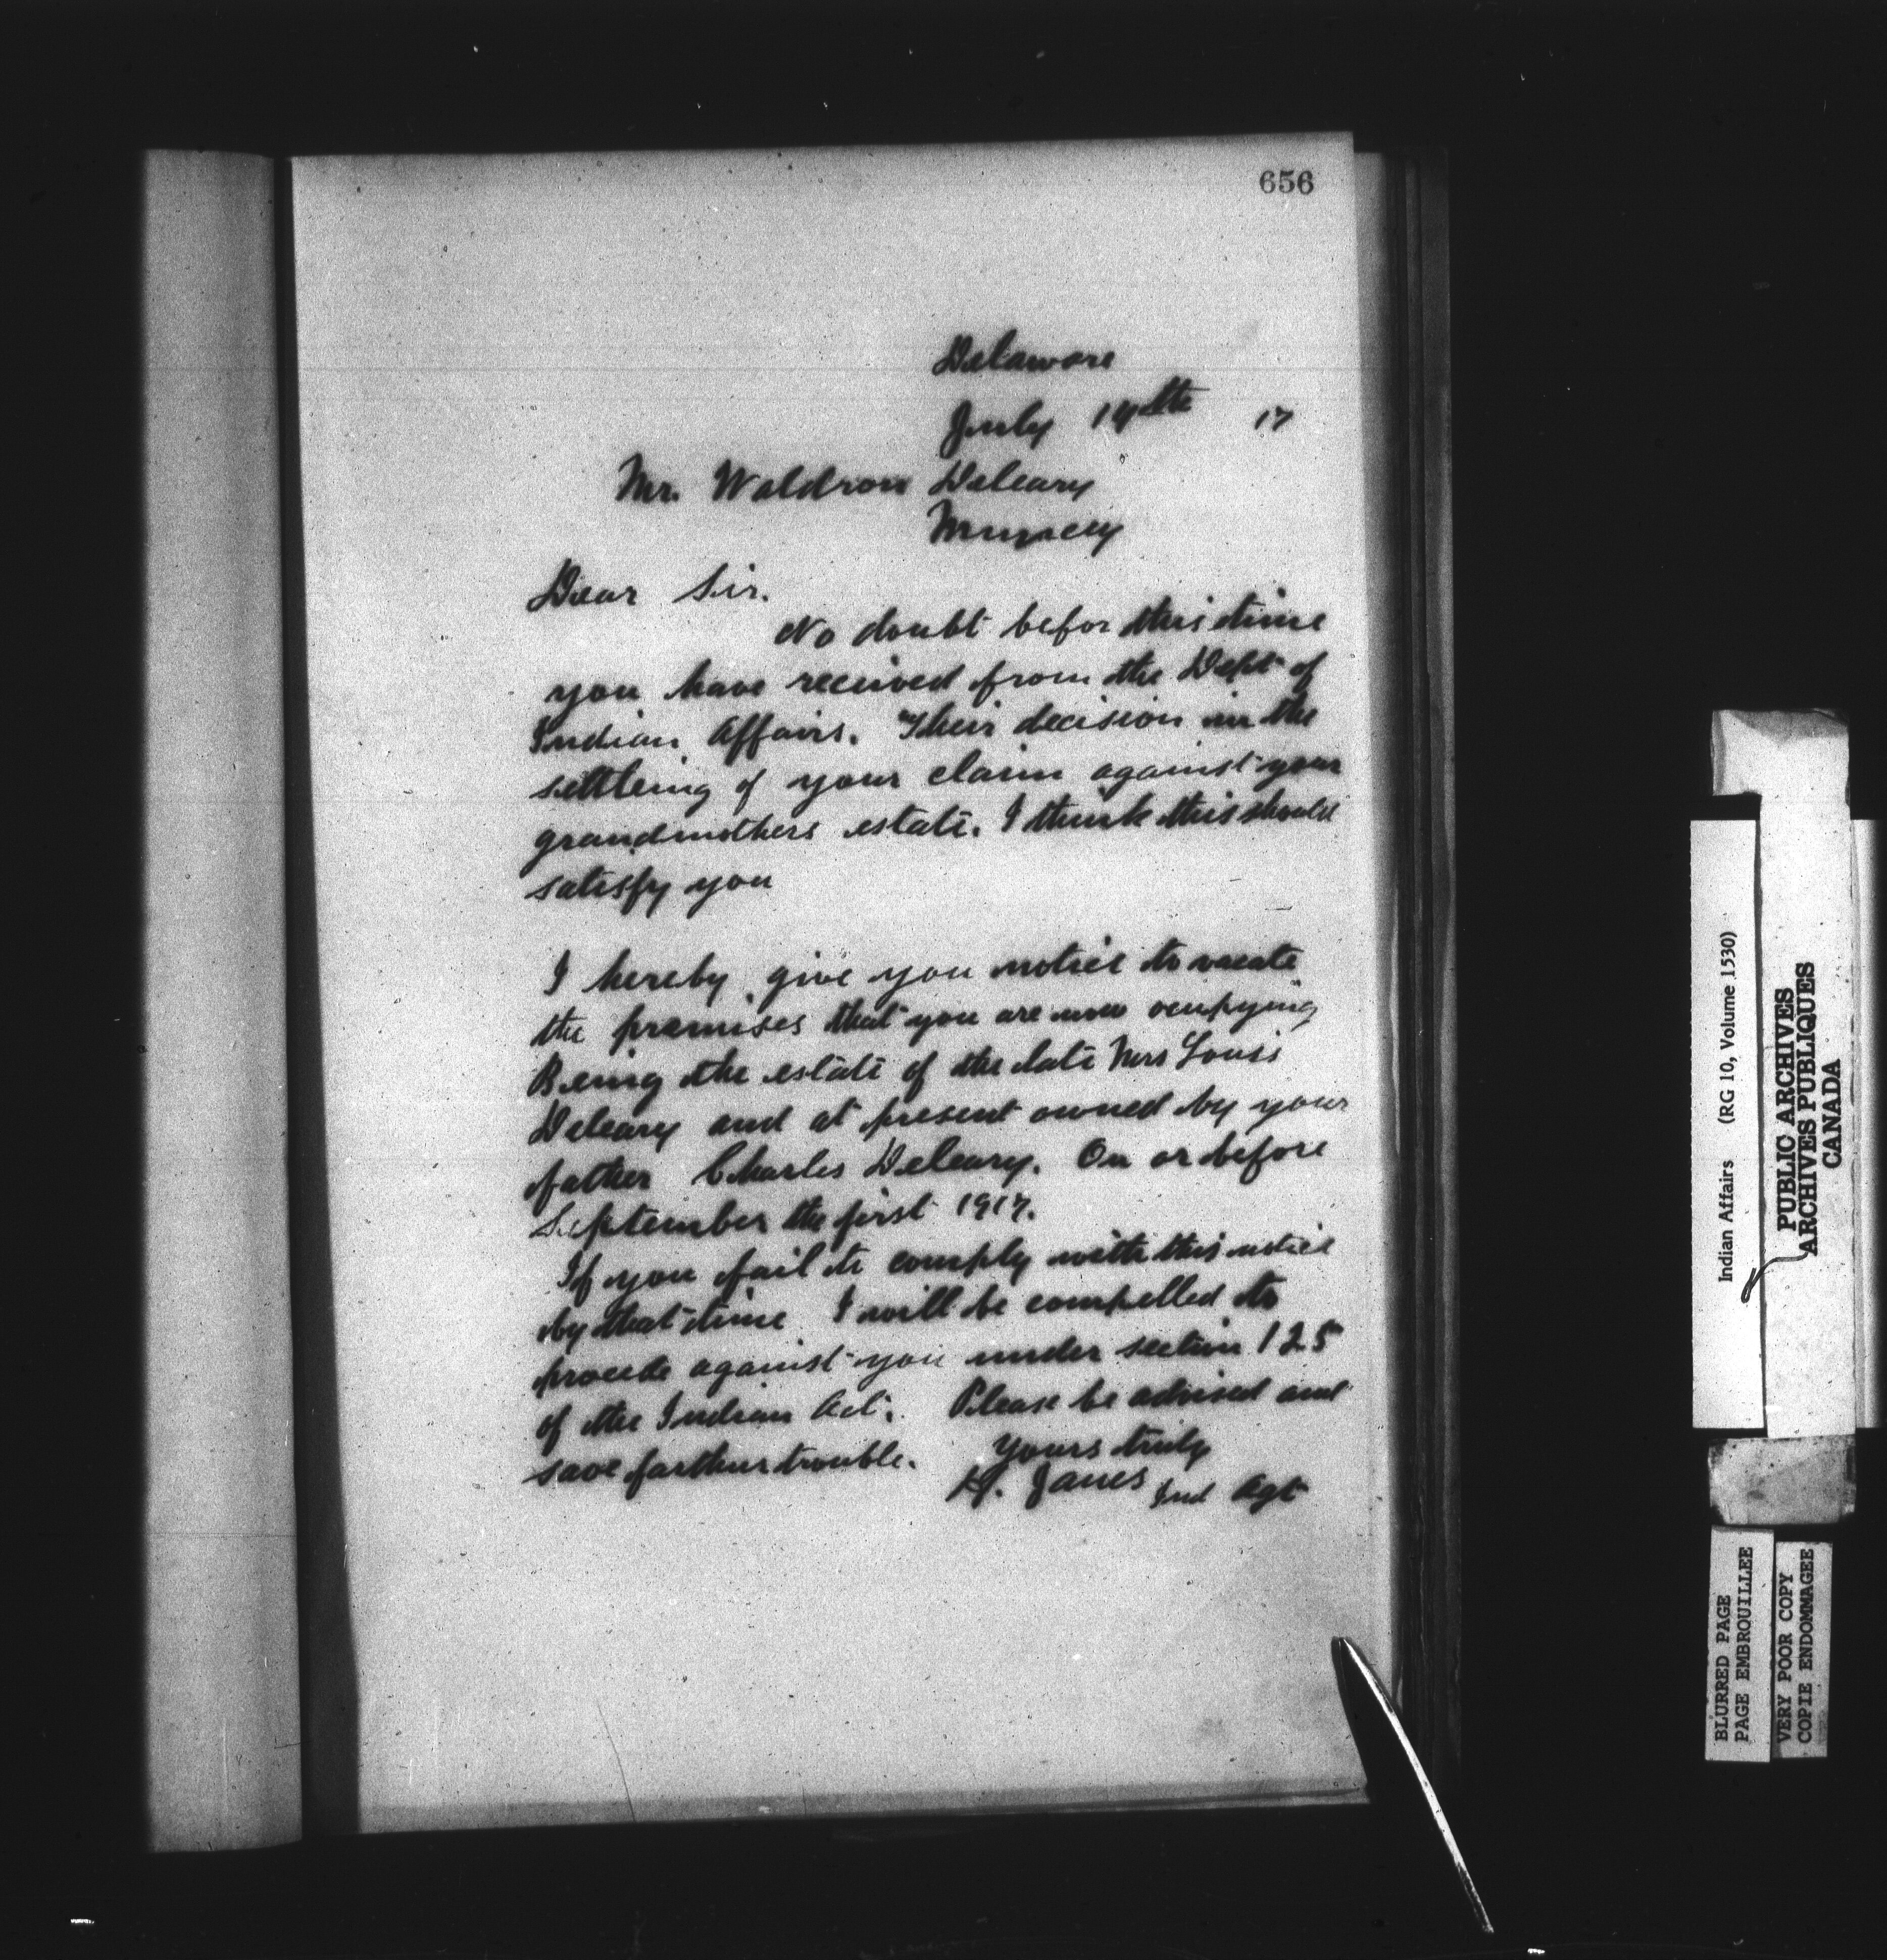 656
Delaware
July 19th 17
Mr. Waldron Deleary
Muncey
Dear Sir.
No doubt befor this time
you have received from the Dept of
Indian Affairs. Their decision in the
settleing of your claim against your
grandmothers estate. I think this should
satisfy you
I hereby give you notice to vacate
the premises that you are now ocupying
Being the estate of the late Mrs Louis
Deleary and at present owned by your
father Charles Deleary. On or before
September the first 1917.
If you fail to comply with this notice
by that time I will be compelled to
procede against you under section 125
of the Indian Act. Please be advised and
save farther trouble. Yours truly
H. Janes Ind Agt
Indian Affairs (RG 10, Volume 1530)
PUBLIC ARCHIVES
ARCHIVES PUBLIQUES
CANADA
BLURRED PAGE
PAGE EMBROUILLEE
VERY POOR COPY
COPIE ENDOMMAGEE